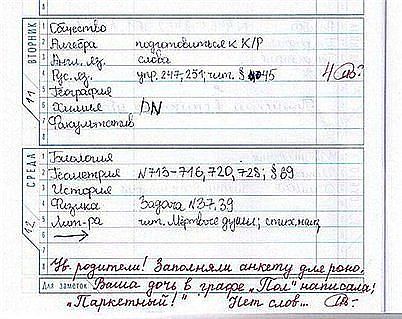 ВТОРНИК
11
1 Общество
2 Алгебра подготовиться к К/Р
3 Англ. яз. слова
4 Рус. яз. упр. 247; 251; чит. § 45
5 География
6 Химия DN
7 Факультатив
8
4
СРЕДА
12
1 Биология
2 Геометрия №713-716, 720, 728; § 89
3 История
4 Физика Задача №37,39
5 Лит-ра чит. Мёртвые души;
6
7
8 Ув. родители! Заполняли анкету для роно.
Для заметок Ваша дочь в графе „Пол" написала:
„Паркетный!" Нет слов...